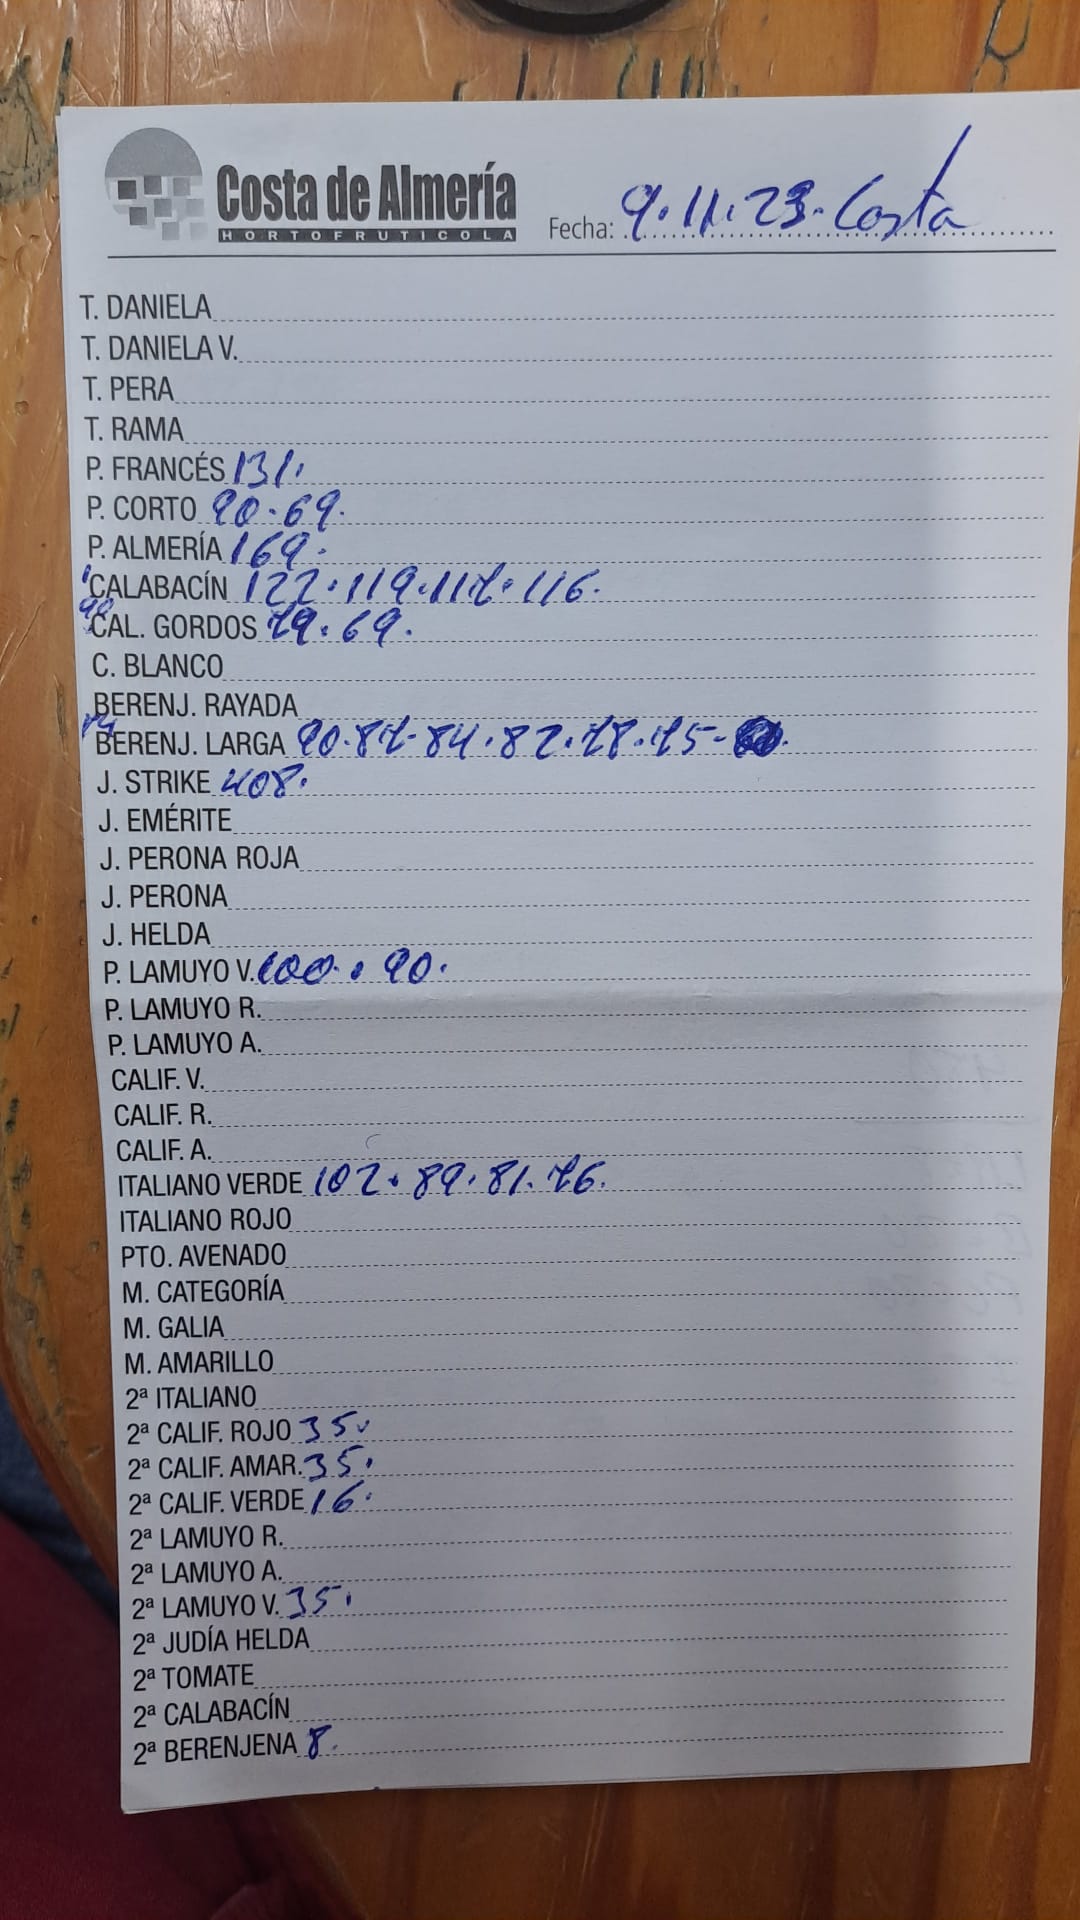 Costa de Almería
HORTOFRUTICOLA
Fecha: 9.11.23. Costa
T. DANIELA
T. DANIELA V.
T. PERA
T. RAMA
P. FRANCÉS 131.
P. CORTO 90.69.
P. ALMERÍA 169.
CALABACÍN 122.119.117.116.
CAL. GORDOS 79.69.
C. BLANCO
BERENJ. RAYADA
BERENJ. LARGA 90.87.84.82.78.75.
J. STRIKE 408.
J. EMÉRITE
J. PERONA ROJA
J. PERONA
J. HELDA
P. LAMUYO V. 100.90.
P. LAMUYO R.
P. LAMUYO A.
CALIF. V.
CALIF. R.
CALIF. A.
ITALIANO VERDE 102.89.81.76.
ITALIANO ROJO
PTO. AVENADO
M. CATEGORÍA
M. GALIA
M. AMARILLO
2ª ITALIANO
2ª CALIF. ROJO 35.
2ª CALIF. AMAR. 35.
2ª CALIF. VERDE 16.
2ª LAMUYO R.
2ª LAMUYO A.
2ª LAMUYO V. 35.
2ª JUDÍA HELDA
2ª TOMATE
2ª CALABACÍN
2ª BERENJENA 8.